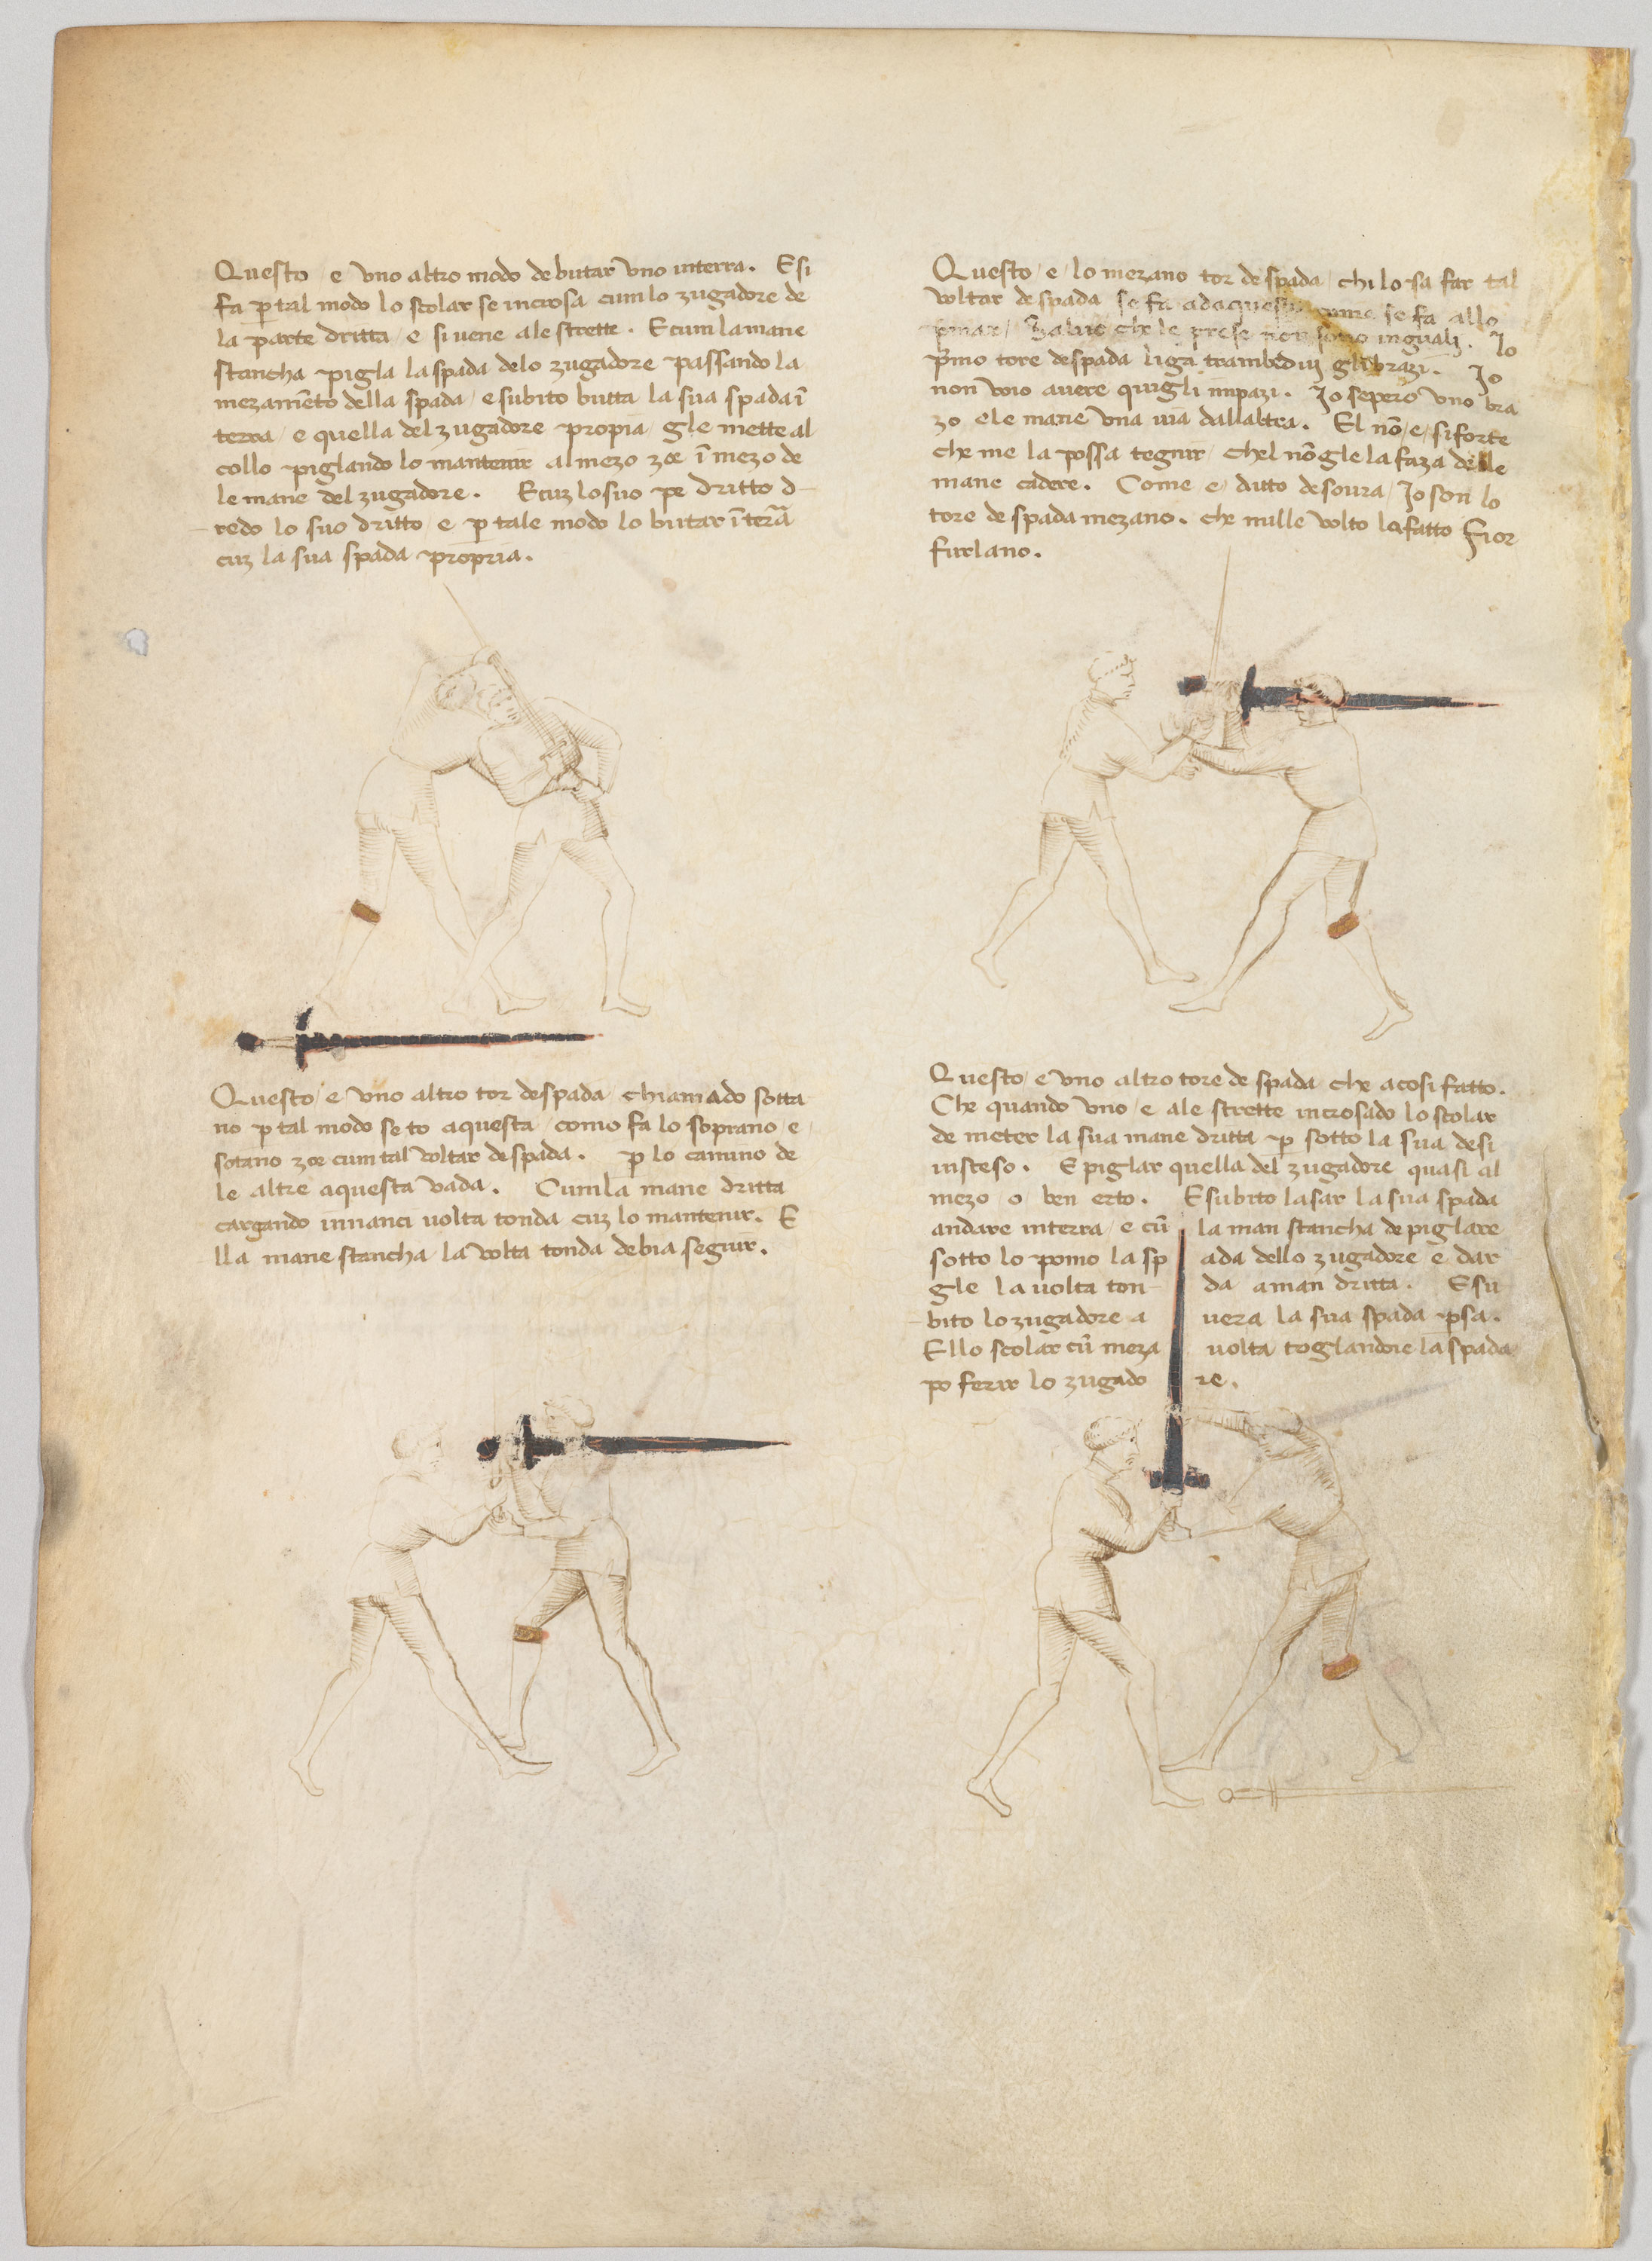 Questo e uno altro modo de butar uno in terra. E si
fa p̲ tal modo lo scolar se incrosa cum lo zugadore de
la parte dritta e si vene a le strette. E cum la mane
stancha pigla la spada delo zugadore passando la
mezamẽto della spada / e subito butta la sua spada ĩ
terra / e quella del zugadore propia gle mette al
collo piglando lo mantenir al mezo zoe ĩ mezo de
le mane del zugadore. E cuz lo suo pe dritto d
redo lo suo dritto / e p̲ tale modo lo butar ĩ terã
cuz la sua spada propria.
Questo / e uno altro tor de spada chiamado sotta
no p̲ tal modo se to aquesta como fa lo soprano / e
sotano zoe cum tal voltar de spada. p̲ lo camino de
le altre aquesta vada. Cum la mane dritta
cargando innanci volta tonda cuz lo mantenir. E
lla mane stancha la volta tonda debia seguir.
Questo / e / lo mezano tor de spada / chi lo sa far tal
voltar de spada se fa se fa allo
Salvo che le prese non sono inguali. Io
p̃mo tore de spada liga trambedui gli brazi. Io
non voio avere quigli impazi. Io sepero uno bra
zo e le mane una via dall altra. El nõ / e / si forte
che me la possa tegnir / chel nõ gle la faza delle
mane cadere. Come e ditto de soura / Io son lo
tore de spada mezano. che mille volto lo fatto Fior
furlano.
Questo / e uno altro tore de spada che a cosi fatto.
Che quando uno / e ale strette incrosado lo scolar
de meter la sua mane dritta p̲ sotto la sua de si
insteso. E piglar quella del zugadore quasi al
mezo o ben erto. E subito lasar la sua spada
andare in terra / e cũ la man stancha de piglare
sotto lo pomo la spada dello zugadore e dar
gle la volta tonda a man dritta. E su
bito lo zugadore avera la sua spada p̲sa.
E llo scolar cũ meza volta toglandoie la spada
po ferir lo zugadore.